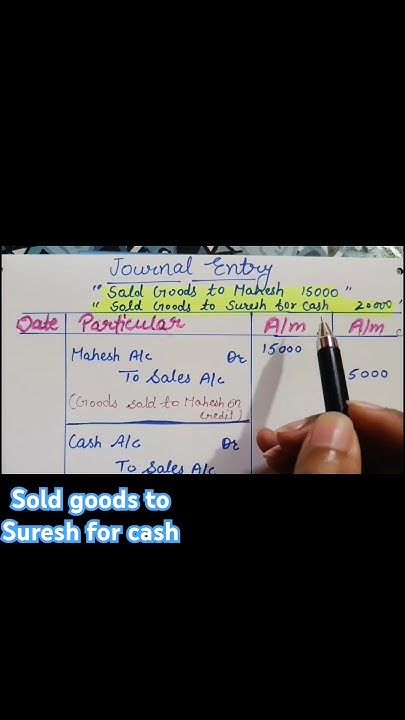 Journal Entry
" Sold Goods to Mahesh 15000 "
" Sold Goods to Suresh for Cash 20000 "
Date Particular A/m A/m
Mahesh A/c Dr 15000
To Sales A/c 5000
(Goods sold to Mahesh on
credit)
Cash A/c Dr
To Sales A/c
Sold goods to
Suresh for cash